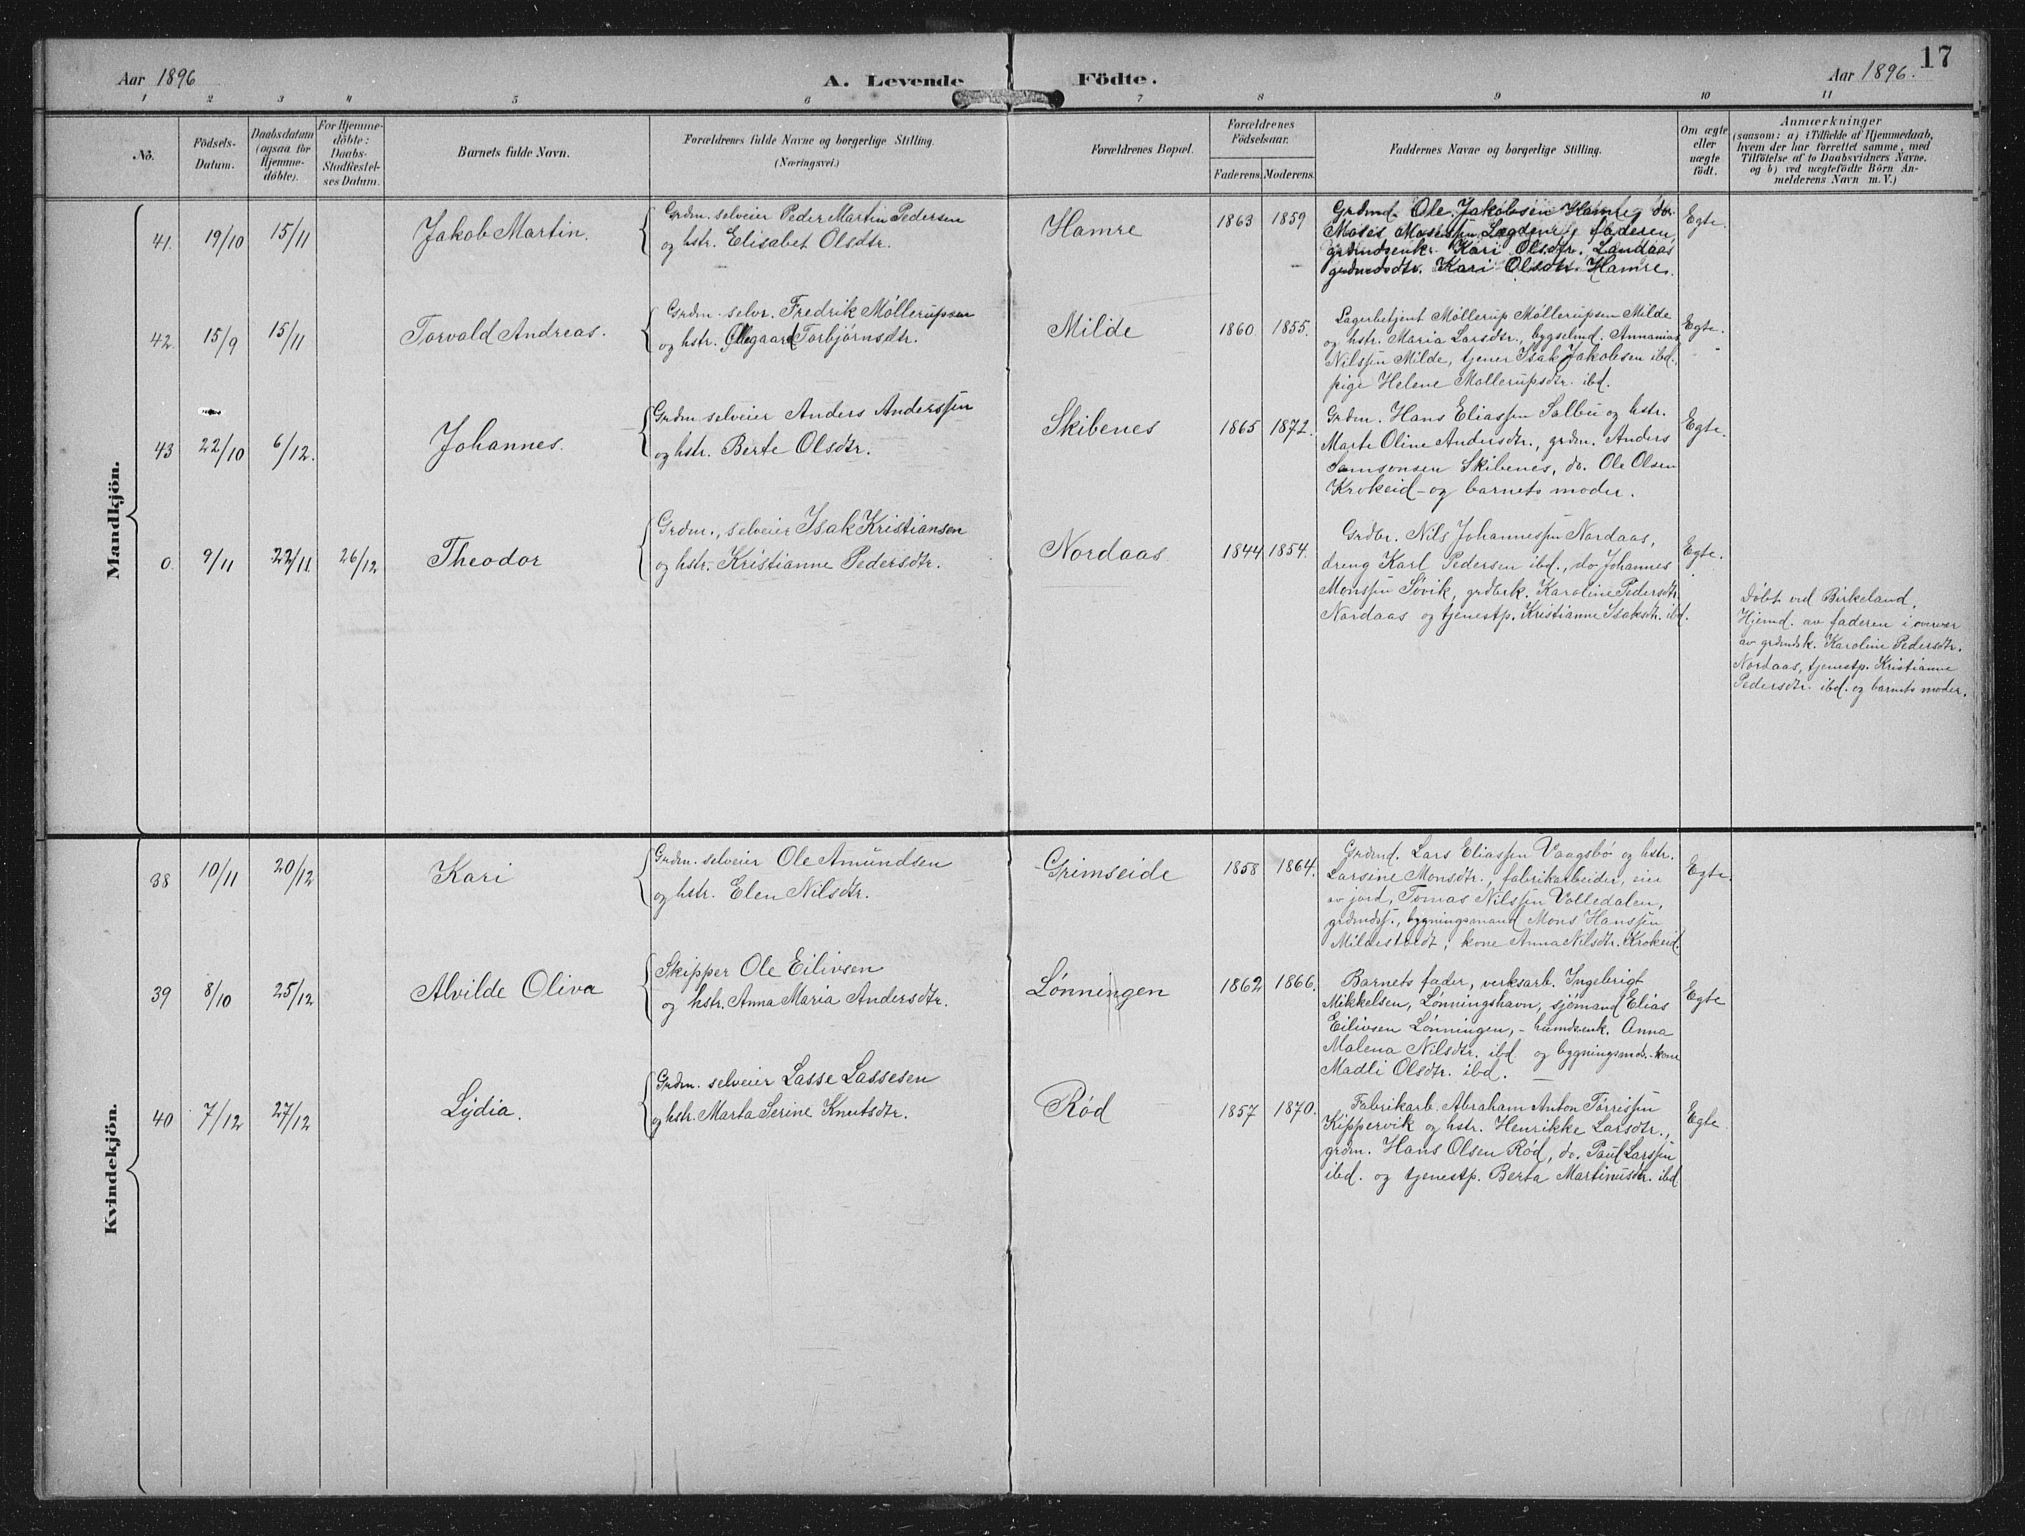 17
Aar 1896 A. Levende Födte. Aar 1896.
1 2 3 4 5 6 7 8 9 10 11
No. Födsels-Datum. Daabsdatum (ogsaa for Hjemme-döbte). For Hjemme-döbte: Daabs-Stadfæstel-ses Datum. Barnets fulde Navn. Forældrenes fulde Navne og borgerlige Stilling. (Næringsvei.) Forældrenes Bopæl. Forældrenes Födselsaar. Faderens. Moderens. Faddernes Navne og borgerlige Stilling. Om ægte eller uægte födt. Anmærkninger (saasom: a) i Tilfælde af Hjemmedaab, hvem der har forrettet samme, med Tilföielse af to Daabsvidners Navne. og b) ved uægtefödte Börn An-melderens Navn m. V.)
Mandkjön.
41. 19/10 15/11 Jakob Martin. Grdm. selveier Peder Martin Pedersen
og hstr. Elisabet Olsdtr. Hamre 1863 1859 Grdmd. Ole Jakobsen Hamre, do.
Moses Mosessen Lægdene, faderen,
grdmdsenk. Kari Olsdtr. Landaas
grdmdsdtr. Kari Olsdtr. Hamre. Egte.
42. 15/9 15/11 Torvald Andreas. Grdm. selvr. Fredrik Möllerupsen
og hstr. Ollegaard Torbjörnsdtr. Milde 1860 1855. Lagerbetjent Möllerup Möllerupsen Milde
og hstr. Maria Larsdtr., bygselmd. Annanias
Nilssen Milde, tjener Isak Jakobsen ibd.
pige Helene Möllerupsdtr. ibd. Egte.
43 22/10 6/12. Johannes. Grdm. selveier Anders Anderssen
og hstr. Berte Olsdtr. Skibenes 1865 1872. Grdm. Hans Eliassen Salbu og hstr.
Marte Oline Andersdtr., grdm. Anders
Samsonsen Skibenes, do. Ole Olsen
Krokeid - og barnets moder. Egte.
0. 9/11 22/11 26/12 Theodor Grdm., selveier Isak Kristiansen
og hstr. Kristianne Pedersdtr. Nordaas 1844 1854. Grdbr. Nils Johannessen Nordaas,
dreng Karl Pedersen ibd., do Johannes
Monssen Sövik, grdbrk. Karoline Pedersdtr.
Nordaas og tjenestp. Kristianne Isaksdtr. ibd. Egte.
Döbt ved Birkeland.
Hjemd. av faderen i overvær
av grdmdsk. Karoline Pedersdtr.
Nordaas, tjenestp. Kristianne
Pedersdtr. ibd. og barnets moder.
Kvindekjön.
38 10/11 20/12 Kari Grdm. selveier Ole Amundsen
og hstr. Elen Nilsdtr. Grimseide 1858 1864. Grdmd. Lars Eliassen Vaagsbö og hstr.
Larsine Monsdtr., fabrikarbeider, eier
av jord, Tomas Nilssen Volledalen,
grdmds., bygningsmand Mons Hanssen
Mildestvedt, kone Anna Nilsdtr. Krokeid. Egte.
39 8/10 25/12 Alvilde Oliva Skipper Ole Eilivsen
og hstr. Anna Maria Andersdtr. Lönningen 1862 1866. Barnets fader, verksarb. Ingebrigt
Mikkelsen, Lönningshavn, sjömand Elias
Eilivsen Lönningen, - humdsenk. Anna
Malena Nilsdtr. ibd og bygningsmds. kone
Madli Olsdtr. ibd. Egte
40 7/12 27/12 Lydia. Grdm. selveier Lasse Lassesen
og hstr. Marta Serine Knutsdtr. Röd 1857 1870. Fabrikarb. Abraham Anton Törrissen
Kippervik og hstr. Henrikke Larsdtr.,
grdm. Hans Olsen Röd, do. Paul Larssen
ibd. og tjenestp. Berta Martinusdtr. ibd Egte